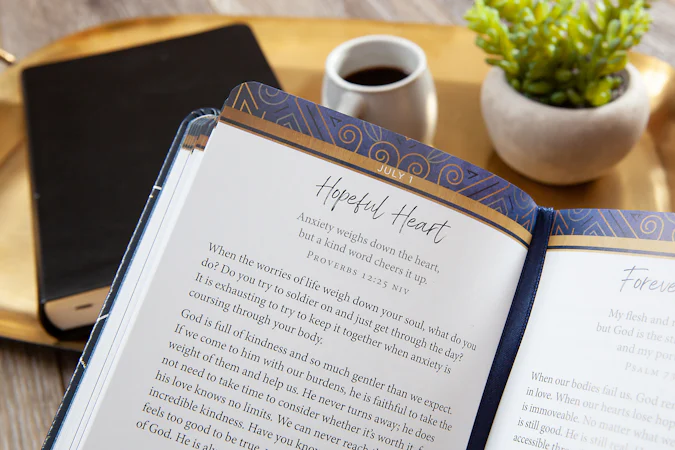 JULY 1
Hopeful Heart
Anxiety weighs down the heart,
but a kind word cheers it up.
PROVERBS 12:25 NIV
When the worries of life weigh down your soul, what do you
do? Do you try to soldier on and just get through the day?
It is exhausting to try to keep it together when anxiety is
coursing through your body.
God is full of kindness and so much gentler than we expect.
If we come to him with our burdens, he is faithful to take the
weight of them and help us. He never turns away; he does
not need to take time to consider whether it's worth it
his love knows no limits. We can never reach
incredible kindness. Have you
feels too good to be true
of God. He is
My flesh and
but God is the
and my
PSALM
When our bodies fail us, God
in love. When our hearts lose
is immoveable. No matter what
is still good. He is still
accessible